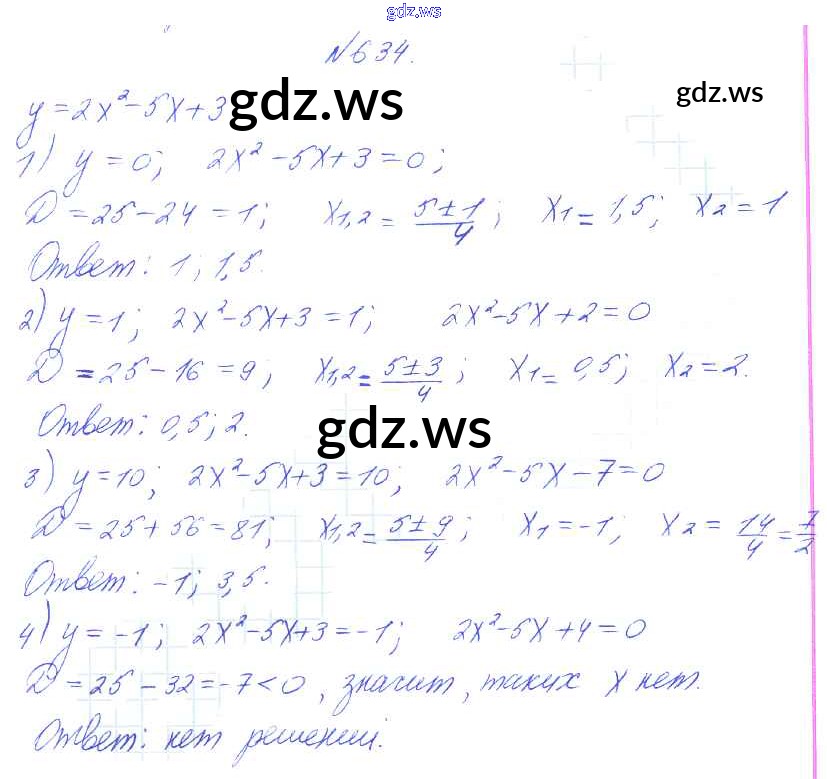 gdz.ws
№634.
y=2x²-5x+3 gdz.ws gdz.ws
1) y=0; 2x²-5x+3=0;
D=25-24=1; x1,2=(5±1)/4; x1=1,5; x2=1
Ответ: 1; 1,5.
2) y=1; 2x²-5x+3=1; 2x²-5x+2=0
D=25-16=9; x1,2=(5±3)/4; x1=0,5; x2=2.
Ответ: 0,5; 2.
gdz.ws
3) y=10; 2x²-5x+3=10; 2x²-5x-7=0
D=25+56=81; x1,2=(5±9)/4; x1=-1; x2=14/4=7/2
Ответ: -1; 3,5.
4) y=-1; 2x²-5x+3=-1; 2x²-5x+4=0
D=25-32=-7<0, значит, таких x нет.
Ответ: нет решений.